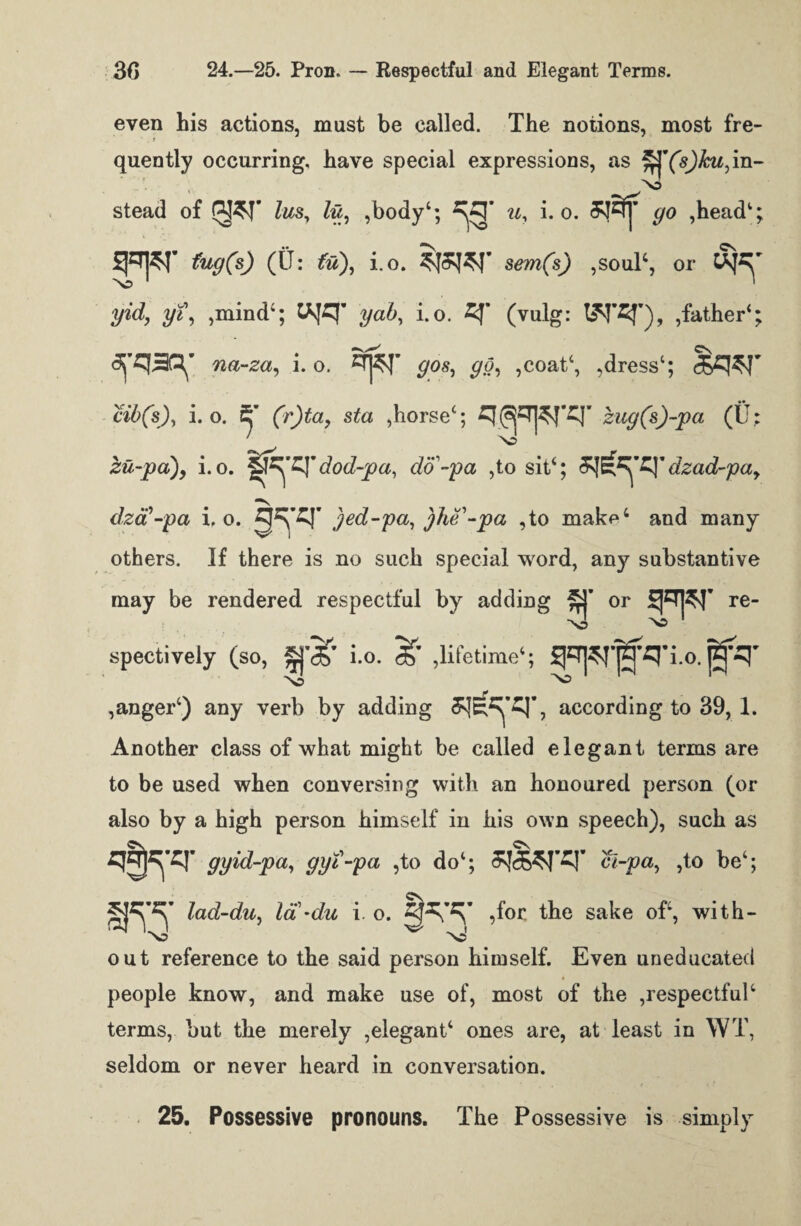 36 24.—25. Pron. — Respectful and Elegant Terms.
even his actions, must be called. The notions, most fre-
quently occurring, have special expressions, as སྐུ་ (s)ku, in-
stead of ལུས་ lus, lū, ‚body‘; དབུ་ u, i. o. མགོ་ go ‚head‘;
ཐུགས་ t̔ug(s) (Ü: t̔ū), i.o. སེམས་ sem(s) ‚soul‘, or ཡིད་
yid, yi', ‚mind‘; ཡབ་ yab, i.o. ཕ་ (vulg: ཨ་ཕ་), ‚father‘;
ན་བཟའ་ na-za, i. o. གོས་ gos, go̤, ‚coat‘, ‚dress‘; ཆིབས་
c̔ib(s), i. o. རྟ་ (r)ta, sta ‚horse‘; བཞུགས་པ་ žug(s)-pa (Ü:
žū-pa), i.o. སྡོད་པ་ dod-pa, do'-pa ‚to sit‘; མཛད་པ་ dzad-pa,
dza'-pa i. o. བྱེད་པ་ j̀ed-pa, j̀he'-pa ‚to make‘ and many
others. If there is no such special word, any substantive
may be rendered respectful by adding སྐུ་ or ཐུགས་ re-
spectively (so, སྐུ་ཚེ་ i.o. ཚེ་ ‚lifetime‘; ཐུགས་ཁྲོ་བ་ i.o. ཁྲོ་བ་
‚anger‘) any verb by adding མཛད་པ་, according to 39, 1.
Another class of what might be called elegant terms are
to be used when conversing with an honoured person (or
also by a high person himself in his own speech), such as
བགྱིད་པ་ gyid-pa, gyi'-pa ‚to do‘; མཆིས་པ་ c̔i-pa, ‚to be‘;
སླད་དུ་ lad-du, la'-du i. o. ཕྱིར་དུ་ ‚for the sake of‘, with-
out reference to the said person himself. Even uneducated
people know, and make use of, most of the ‚respectful‘
terms, but the merely ‚elegant‘ ones are, at least in WT,
seldom or never heard in conversation.
25. Possessive pronouns. The Possessive is simply